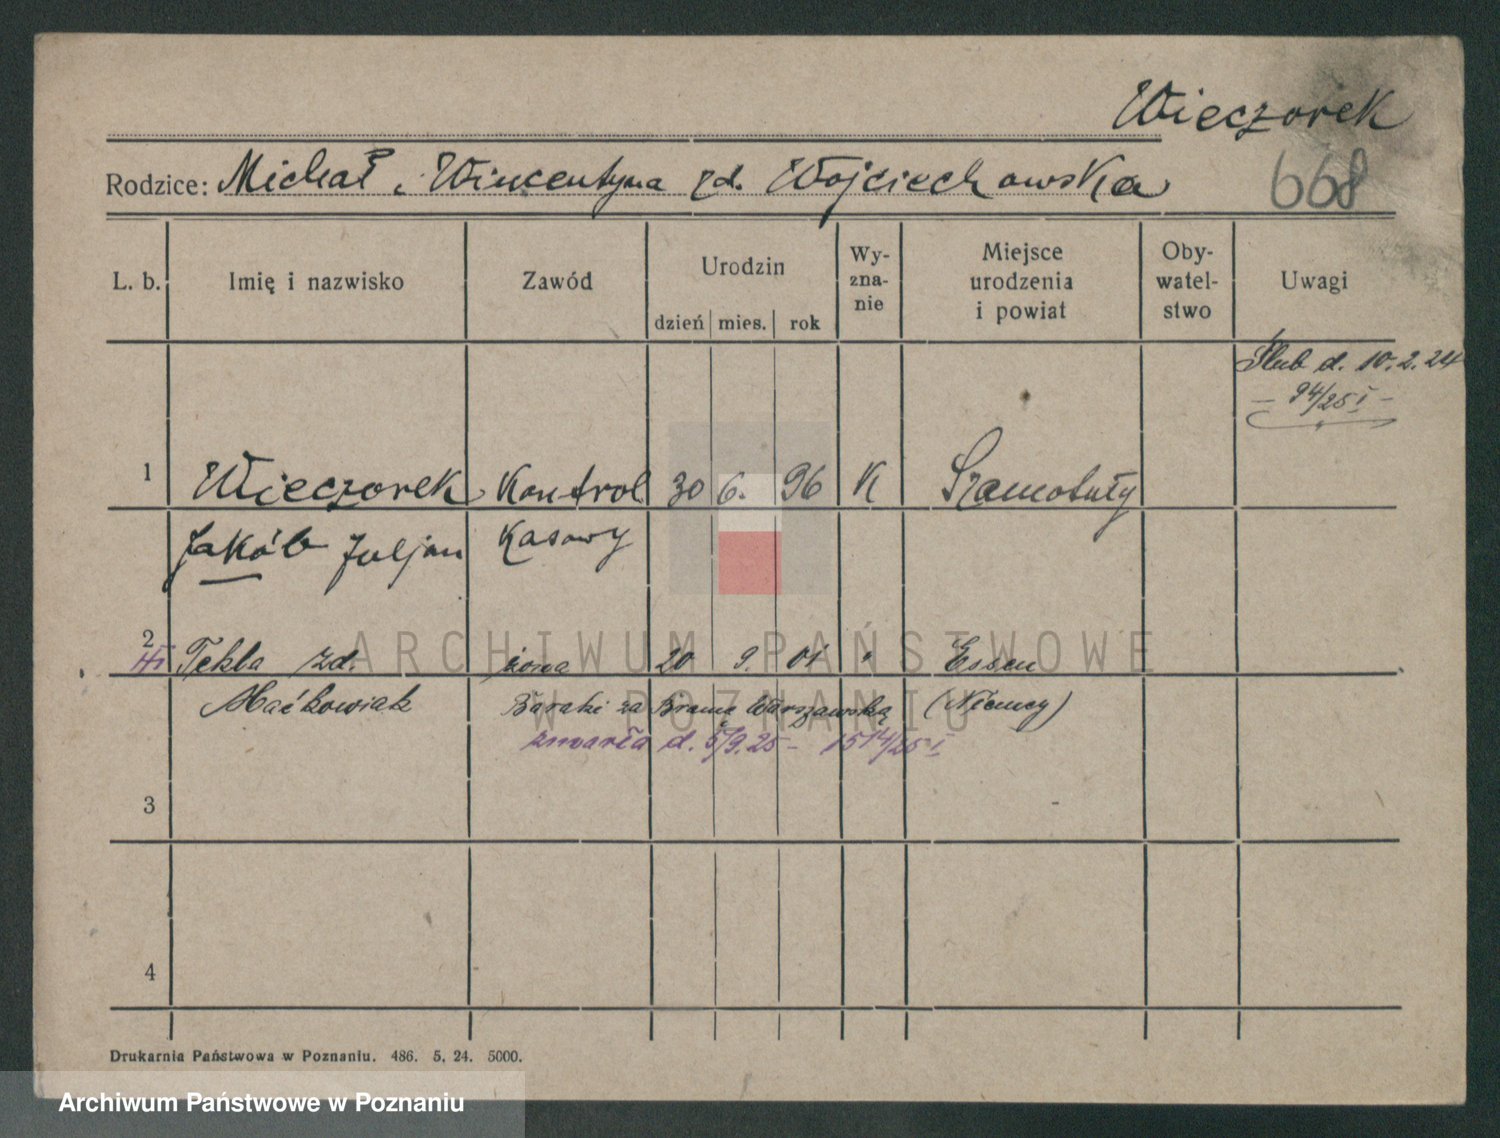 Wieczorek
Rodzice: Michał i Wincentyna zd. Wojciechowska
668
L. b. Imię i nazwisko Zawód Urodzin dzień mies. rok Wy-zna-nie Miejsce urodzenia i powiat Oby-watel-stwo Uwagi
Ślub d. 10.2.24
– 94/25 I –
1 Wieczorek Kontrol 30 6. 96 K Szamotuły
Jakób Juljan Kasowy
2 Tekla zd. żona 20 9. 01 " Essen
Maćkowiak Baraki za Bramą Warszawską (Niemcy)
zmarła d. 5/9.25 – 1514/25 I
3
4
Drukarnia Państwowa w Poznaniu. 486. 5. 24. 5000.
ARCHIWUM PAŃSTWOWE
W POZNANIU
Archiwum Państwowe w Poznaniu